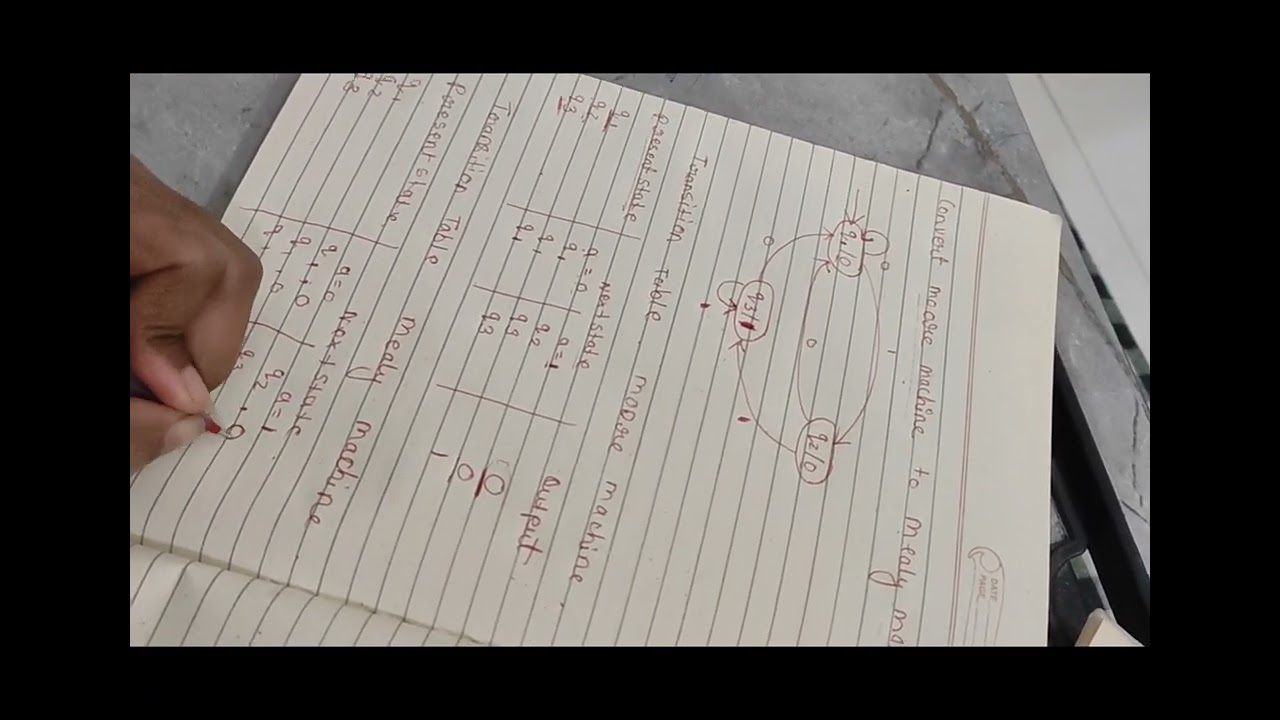 DATE
PAGE
Convert moore machine to mealy ma
q1/0
q2/0
q3/1
0
1
0
0
1
1
Transition Table. moore machine.
Present state Next state output
a=0 a=1
q1 q1 q2 0
q2 q1 q3 0
q3 q1 q3 1
Transition Table mealy machine
Present state Next state
a=0 a=1
q1 q1, 0 q2
q2 q1, 0 q3